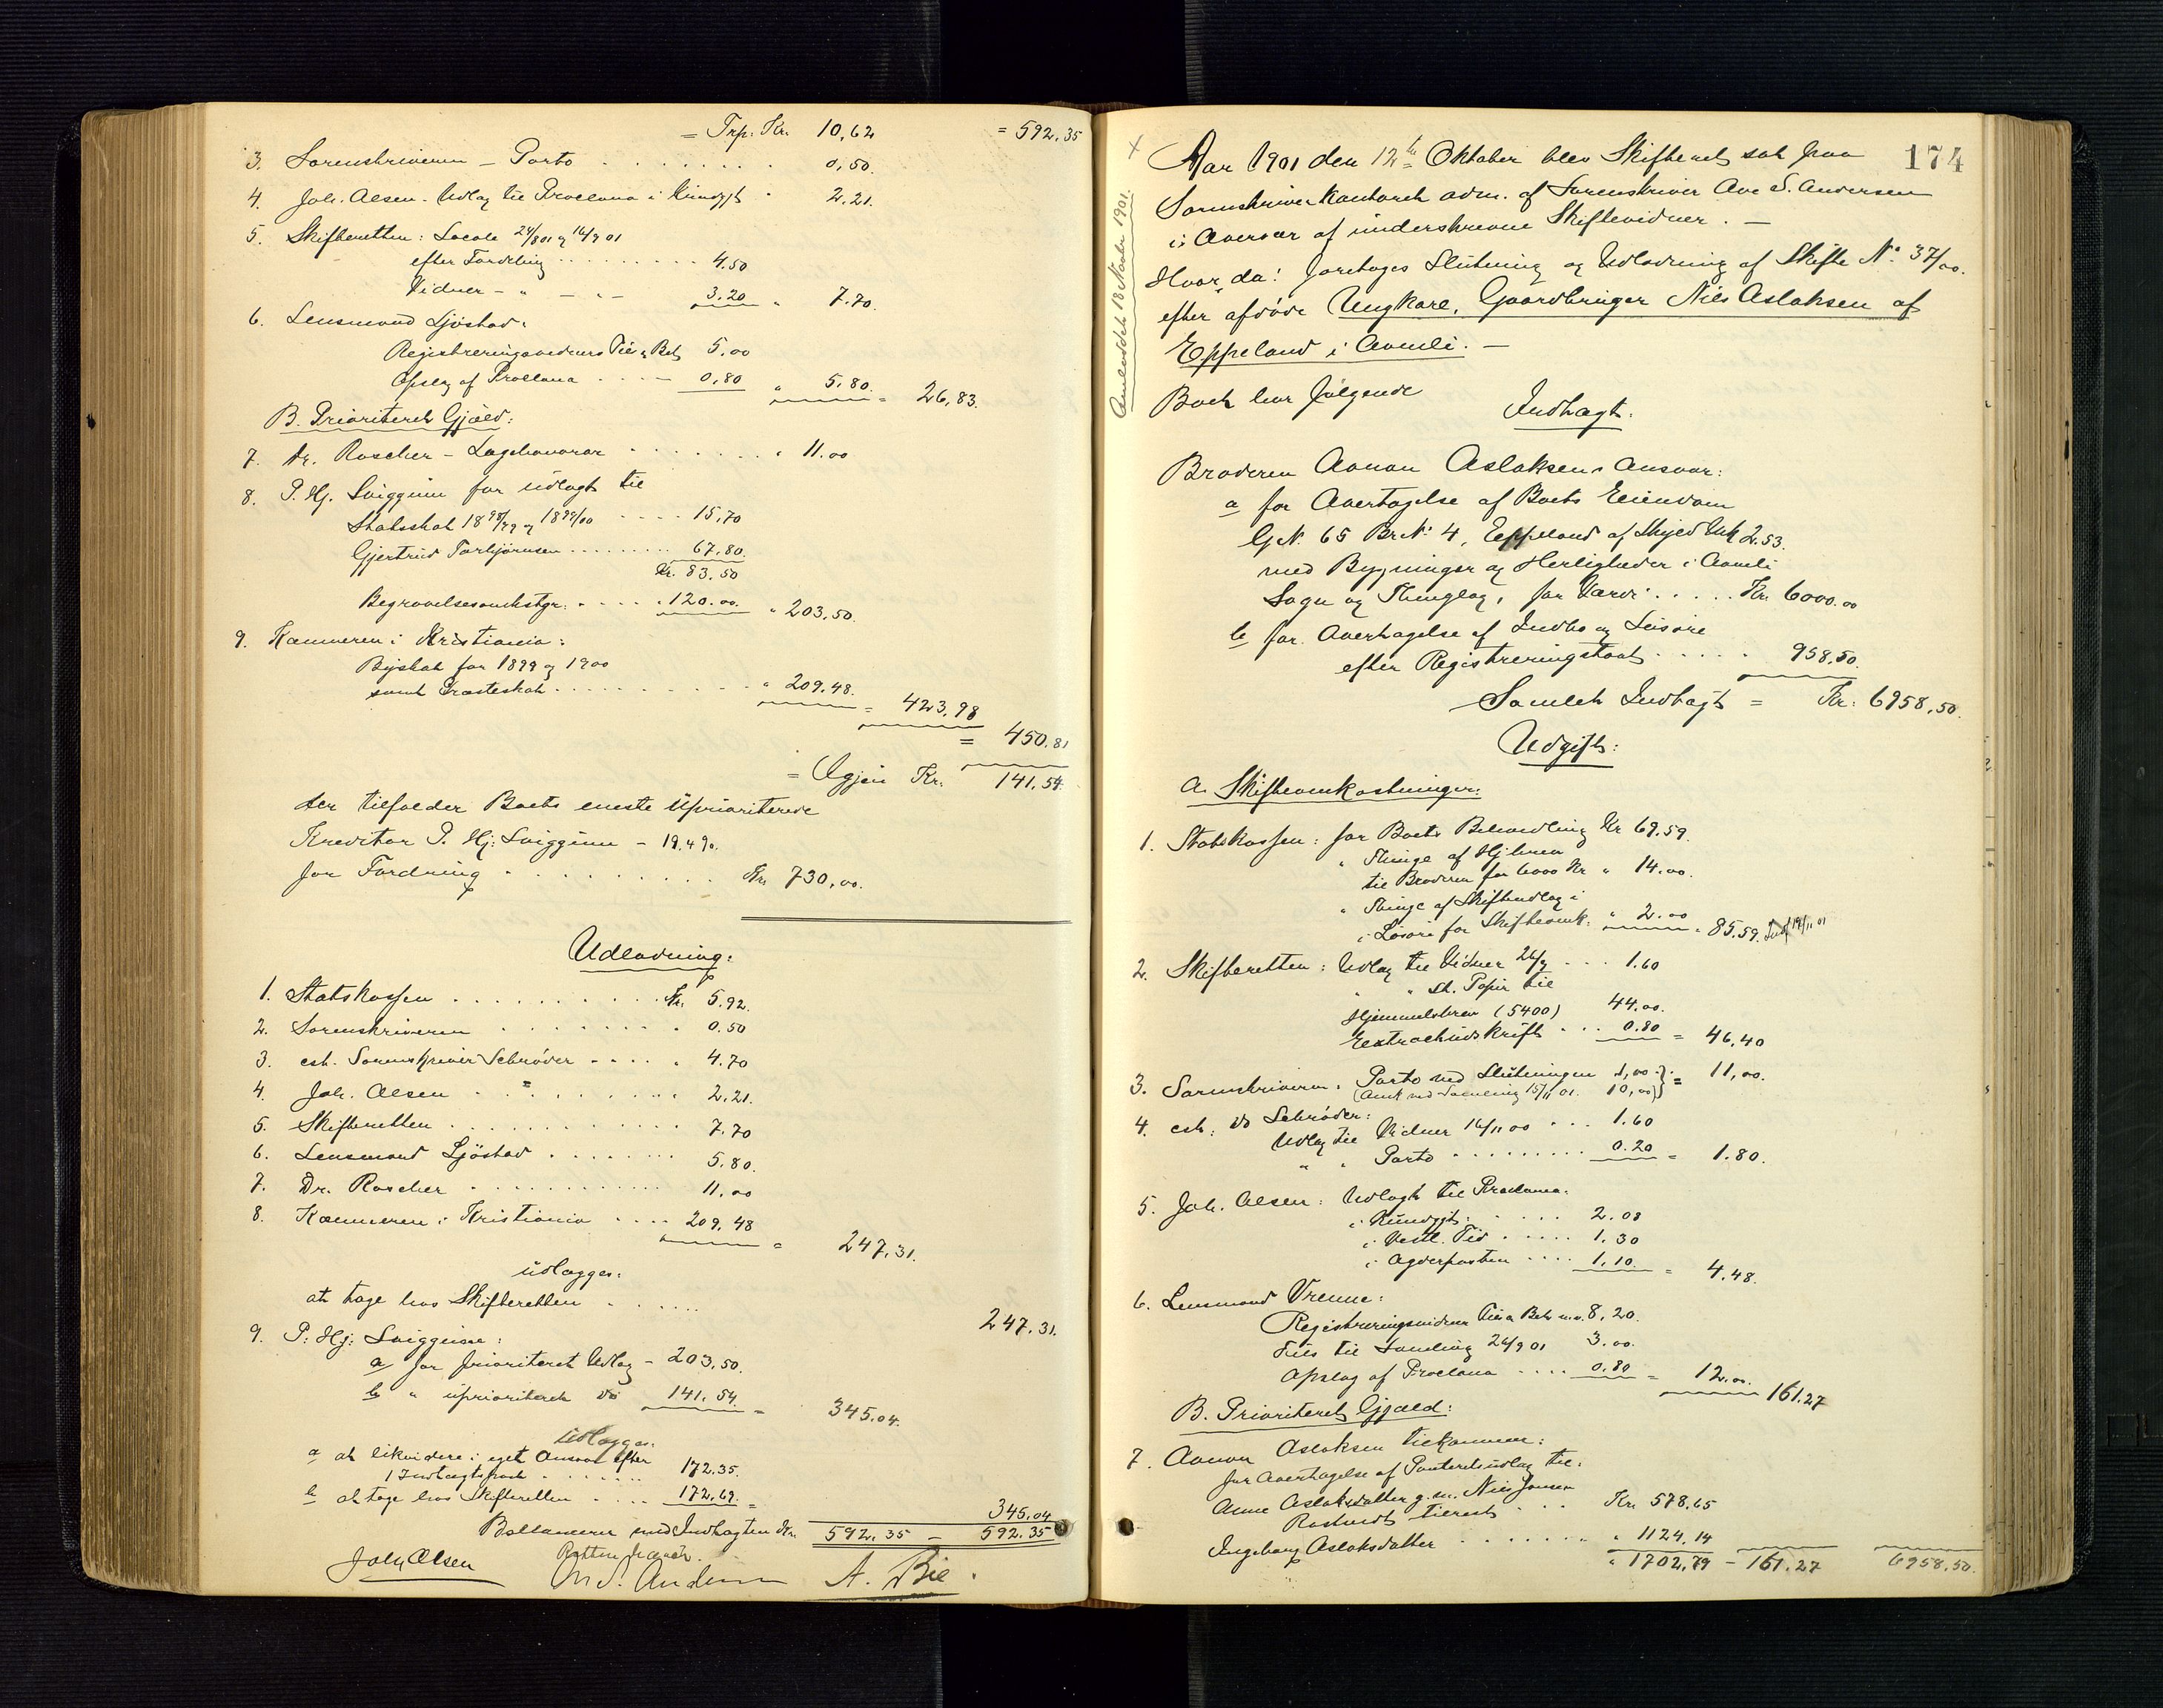 = Trp. Kr. 10,62 = 592.35
3. Sorenskriveren – Porto . . . . . . . 0,50.
4. Joh. Olsen. Udlæg til Proclama i Kundgjt " 2.21.
5. Skifteretten: Locale 24/8 01 og 16/9 01
efter Fordeling . . . . . . . . 4.50
Vidner – " – " – 3.20 " 7.70.
6. Lensmand Ljøstad:
Registreringsvidners Diæt, Bet. 5.00
Opslag af Proclama . . . – 0,80 " 5.80. = 26,83.
B. Prioriteret Gjæld:
7. Dr. Roscher – Lægehonorar . . . . . . . " 11.00
8. P. Hj. Sviggum for udlagt til
Statsskat 1898/99 og 1899/00 . . . . 15,70
Gjertrud Torbjørnsen . . . . . . . . 67,80.
Kr. 83.50
Begravelsesomkstgr. . . . . . " 120.00. " 203,50.
9. Kæmneren i Kristiania:
Byskat for 1899 og 1900
samt Præsteskat . . . . . . . . . " 209.48. = 423,98
= 450.81
= Igjen Kr. 141.54
der tilfalder Boets eneste Uprioriterede
Kreditor P. Hj: Sviggum – 19.4%.
for Fordring . . . . . . . . . Kr. 730,00.
Udlodning:
1. Statskassen . . . . . . . . . . Kr. 5.92.
2. Sorenskriveren . . . . . . . . " 0.50
3. cst. Sorenskriver Schrøder . . . . " 4.70
4. Joh. Olsen . . " . . . . . . . 2.21.
5. Skifteretten . . . . . . . . . . . 7.70
6. Lensmand Ljøstad . . . . . . . 5.80.
7. Dr. Roscher . . . . . . . . . . . 11.00
8. Kæmneren i Kristiania . . . . 209.48 = 247.31.
udlægges:
at tage hos Skifteretten . . . . . . 247.31.
9. P. Hj: Sviggum:
a for prioriteret Udlæg – 203,50.
b " uprioriteret do 141.54. = 345.04.
udlægges:
a at likvidere i eget Ansvar efter
1 Indtægtspost . . . . . . . 172.35.
b at tage hos Skifteretten . . . . 172.69. = 345.04
Ballancerer med Indtægten Kr. 592.35 – 592.35
Joh Olsen Retten hævet. A. Bie.
Ove S. Andersen
174
Aar 1901 den 12te Oktober blev Skifteret sat paa
Sorenskriverkontoret adm. af Sorenskriver Ove S. Andersen
i Overvær af underskrevne Skiftevidner. –
Hvor da: foretoges Slutning og Udlodning af Skifte No. 37/00.
efter afdøde Ungkarl, Gaardbruger Nils Aslaksen af
Eppeland i Aamli. –
Boet har følgende
Indtægt:
Broderen Aanon Aslaksens Ansvar:
a for Overtagelse af Boets Eiendom
G.N. 65 Br.N. 4, Eppeland af Skyld Mk 2.53.
med Bygninger og Herligheder i Aamli
Sogn og Thinglag, for Værdi . . . . . Kr. 6000.00
b for Overtagelse af Indbo og Løsøre
efter Registreringstaxt . . . . . 958,50.
Samlet Indtægt = Kr: 6958,50.
Udgift:
A. Skifteomkostninger:
1. Statskassen: for Boets Behandling Kr 69.59.
" Thingl. af Hj.brev
til Broderen for 6000 Kr " 14.00.
" Thingl. af Skifteudlæg i
i Løsøre for Skifteomk. " 2.00 " 85.59. Indf 19/11 01
2. Skifteretten: Udlæg til Vidner 26/9 . . . 1.60
" " St. Papir til
Hjemmelsbrev (5400) 44.00.
Extractudskrift . . . 0.80 = 46,40
3. Sorenskriveren: Porto ved Slutningen 1,00 } = 11,00.
(Omk ved Samling 15/11 01. 10,00)
4. cst: do Schrøder:
Udlæg til Vidner 16/11 00 . . . 1.60
" " Porto . . . . . . . . . 0.20 = 1.80.
5. Joh. Olsen: Udlagt til Proclama:
i Kundgjt: . . . . . 2.08
i Vestl. Tid . . . . . 1.30
i Agderposten . . . . 1.10. = 4,48.
6. Lensmand Vrenne:
Registreringsvidner Diæt, Bet. m.v. 8,20.
Diæt til Samling 26/9 01 3.00.
Opslag af Proclama . . . . 0.80 = 12.00. 161.27
B. Prioriteret Gjæld:
7. Aanon Aslaksen tilkommer:
for Overtagelse af Panteretudlæg til:
Anne Aslaksdatter g. m. Nils Jensen
tilrest . . . Kr. 578.65
Ingeborg Aslaksdatter . . . . . . . . " 1124,14
" 1702,79 – 161.27 6958,50.